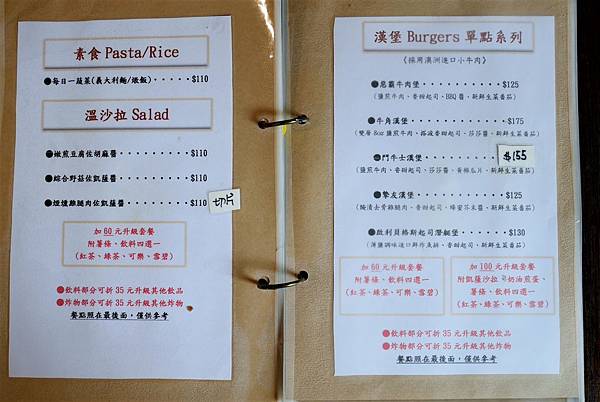 素食 Pasta/Rice
●每日一蔬菜(義大利麵/燉飯)・・・・・$110
溫沙拉 Salad
●嫩煎豆腐佐胡麻醬・・・・・・・・・・$110
●綜合野菇佐凱薩醬・・・・・・・・・・$110
●煙燻雞腿肉佐凱薩醬・・・・・・・・・$110
切片
加 60 元升級套餐
附薯條、飲料四選一
(紅茶、綠茶、可樂、雪碧)
●飲料部分可折 35 元升級其他飲品
●炸物部分可折 35 元升級其他炸物
餐點照在最後面，僅供參考
漢堡 Burgers 單點系列
《採用澳洲進口小牛肉》
●惡霸牛肉堡・・・・・・・・・・$125
(鹽煎牛肉、香甜起司、BBQ醬、新鮮生菜番茄)
●牛角漢堡・・・・・・・・・・・$175
(雙層 8oz 鹽煎牛肉、香甜起司、莎莎醬、新鮮生菜番茄)
鬥牛士漢堡・・・・・・・・・ $155
(鹽煎牛肉、香甜起司、莎莎醬、黃檸瓜片、新鮮生菜番茄)
●摯友漢堡・・・・・・・・・・・$125
(醃漬去骨雞腿肉、香甜起司、蜂蜜芥末醬、新鮮生菜番茄)
●啟利貝格斯起司潛艇堡・・・・・$130
(薄鹽調味進口鮮炸魚排、香甜起司、新鮮生菜番茄)
加 60 元升級套餐
附薯條、飲料四選一
(紅茶、綠茶、可樂、雪碧)
加 100 元升級套餐
附凱薩沙拉 or 奶油煎蛋、
薯條、飲料四選一
(紅茶、綠茶、可樂、雪碧)
●飲料部分可折 35 元升級其他飲品
●炸物部分可折 35 元升級其他炸物
餐點照在最後面，僅供參考